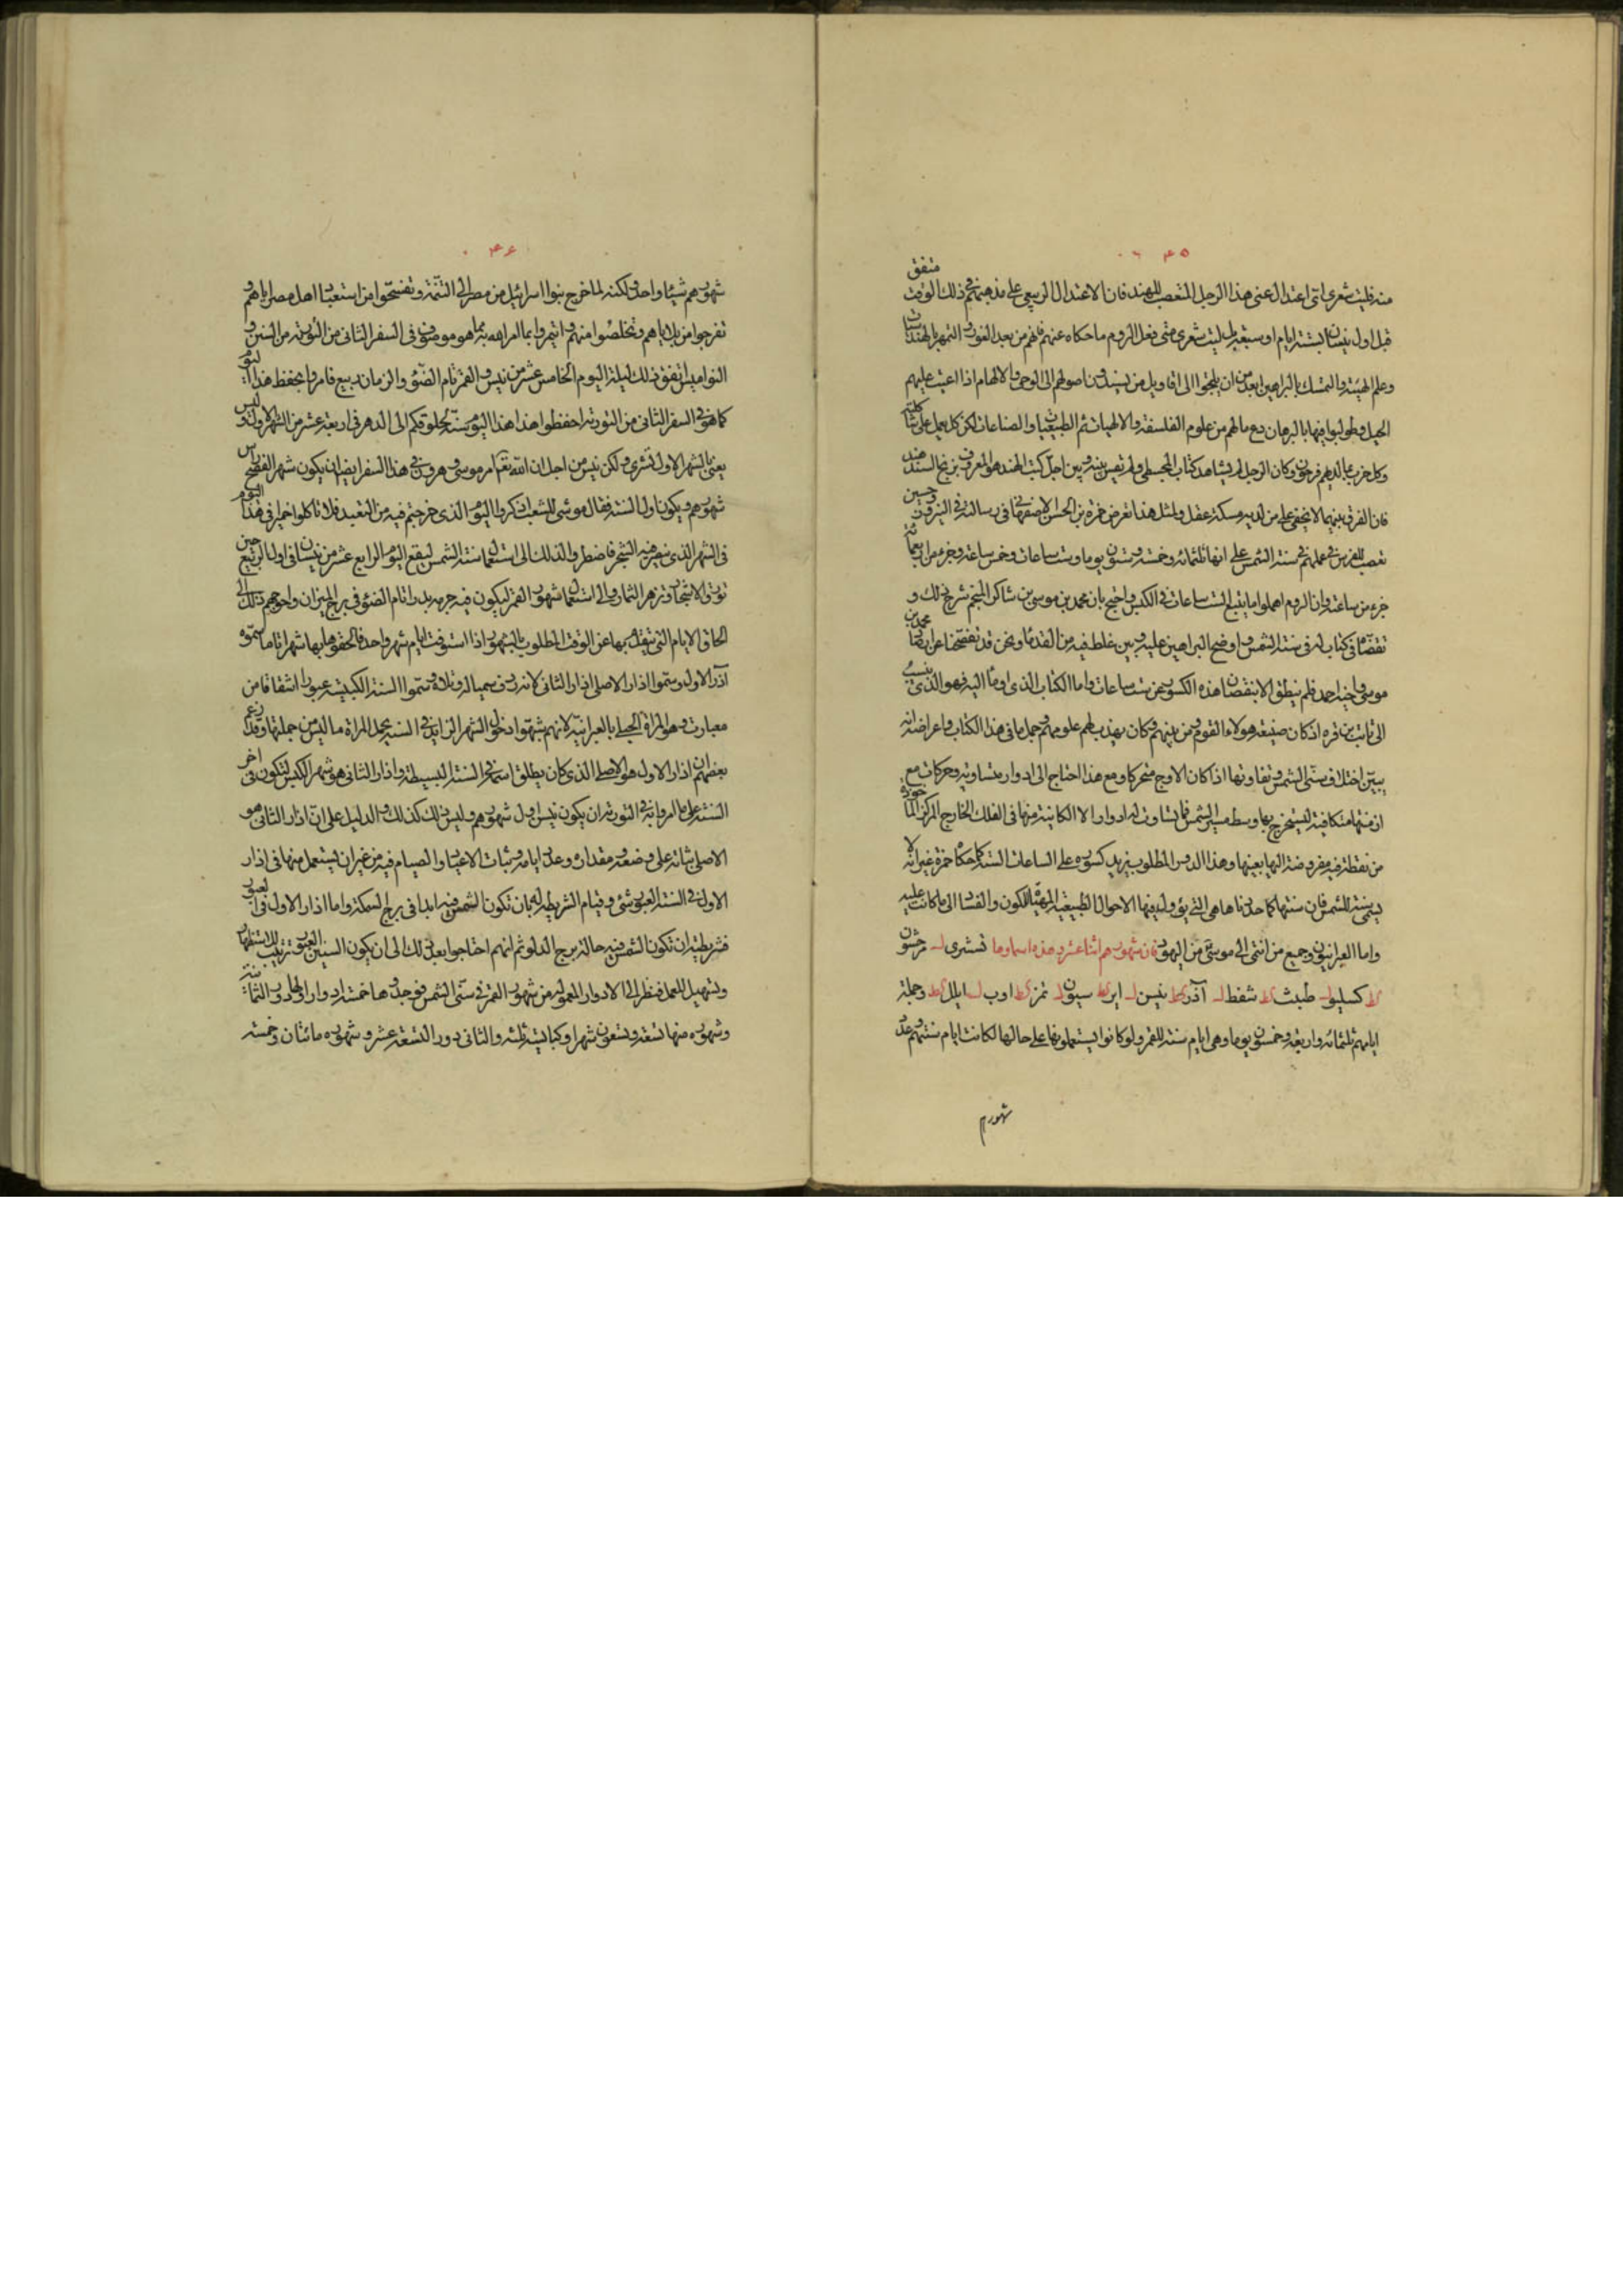 ٤٥
منه فليت شعري اي اعتدال عنى هذا الرجل المتعصب للهند فان الاعتدال الربيعي على مذهبهم في ذلك الوقت متفق
قبل اول نيسان بستة ايام او سبعة بل ليت شعري متى فعل الروم ما حكاه عنهم فانهم من بعد الغور والتمهر بالهندسيات
وعلم الهيئة والتمسك بالبراهين ابعد من ان يلتجوا الى اقاويل من يسندون اصولهم الى الوحي والالهام اذا اعيت عليهم
الحيل وطولبوا فيها بالبرهان دع مالهم من علوم الفلسفة والالهيات ثم الطبيعيات والصناعات لكن كل يعمل على شاكلته
وكل حزب بما لديهم فرحون وكان الرجل لم يشاهد كتاب المجسطي ولم يقس بينه وبين اجل كتب الهند هو المعروف بزيج السند هند
فان الفرق بينهما لا يخفى على من لديه مسكة عقل ولمثل هذا تعرض حمزة بن الحسن الاصفهاني في رسالته في النيروز حين
تعصب للفرس في عملهم في سنة الشمس على انها ثلثمائة وخمسة وستون يوما وست ساعات وخمس ساعة وجزء من اربعمائة
جزء من ساعة وان الروم اهملوا ما يتبع الست ساعات في الكبس واحتج بان محمد بن موسى بن شاكر المنجم شرح ذلك و
تقصاه في كتاب له في سنة الشمس واوضح البراهين عليه وبين غلط فيه من القدماء ونحن قد تفقحنا عن ارصاد محمد بن
موسى واخيه احمد فلم ينطق الا بنقصان هذه الكسور عن ست ساعات واما الكتاب الذي اومأ اليه فهو الذي ينسب
الى ثابت بن قره اذ كان صنيعة هولاء القوم ومن بينهم وكان يهذب لهم علومهم وجمل ما في هذا الكتاب واعراضه انه
يبين اختلاف سني الشمس وتفاوتها اذا كان الاوج متحركا ومع هذا احتاج الى ادوار متساوية وحركات مع
ازمنتها متكافية ليستخرج بها وسط مسير الشمس فما تساوت له ادوار الا الكاينة منها في الفلك الخارج المركز الماخوذة
من نقطة فيه مفروضة اليها بعينها وهذا الدور المطلوب يزيد كسوره على الساعات الست كما حكاه حمزة غير انه لا
يسمى سنة للشمس فان سنتها كما حددناها هي التي يؤول فيها الاحوال الطبيعية المهيئة للكون والفساد الى ما كانت عليه
واما العبرانيون وجميع من انتمى الى موسى من اليهود فان شهورهم اثنا عشر وهذه اسماوها تشرى ل مرحشون
كط كسليو ل طبث كط شفط ل آذر كط نيسن ل اير كط سيون ل تمز كط اوب ل ايلل كط وجملة
ايامهم ثلثمائة واربعة وخمسون يوما وهي ايام سنة للقمر ولو كانوا يستعملونها على حالها لكانت ايام سنتهم وعدد
شهورهم
٤٦
شهورهم شيئا واحدا ولكنه لما خرج بنوا اسرائيل من مصر الى التيه وتفسحوا من استعباد اهل مصر اياهم و
تفرجوا من بلاياهم وتخلصوا منهم وايتمروا بما امر الله به مما هو موصوف في السفر الثاني من التورية من السنن و
النواميس اتفق ذلك ليلة اليوم الخامس عشر من نيسن والقمر تام الضوء والزمان ربيع فامروا بحفظ هذا اليوم
كما هو في السفر الثاني من التورية احفظوا هذا اليوم سنة لخلوقكم الى الدهر في اربعة عشر من الشهر الاول وليس
يعني بالشهر الاول تشري ولكن نيسن من اجل ان الله تعم امر موسى وهرون في هذا السفر ايضا ان يكون شهر الفصح راس
شهورهم ويكون اول السنة فقال موسى للشعب اذكروا اليوم الذي خرجتم فيه من التعبد فلا تاكلوا خميرا في هذا اليوم
في الشهر الذي ينضر فيه الشجر فاضطروا لذلك الى استعمال سنة الشمس ليقع اليوم الرابع عشر من نيسان في اول الربيع حين
تورق الاشجار وتزهر الثمار والى استعمال شهور القمر ليكون فيه جرمه بدرا تام الضوء في برج الميزان واحوجهم ذلك الى
الحاق الايام التي يتقدم بها عن الوقت المطلوب بالشهور اذا استوفت ايام شهر واحد فالحقوها بها شهرا تاما سموه
آذر الاول وسموا اذار الاصلي اذار الثاني لانه ردف سميه الاول وتلاه وسموا السنة الكبيسة عبورا اشتقاقا من
معبارت وهو المراة الحبلى بالعبرانية لانهم شبهوا دخول الشهر الزايد في السنة بحمل المراة ما ليس من جملتها وقد زعم
بعضهم ان اذار الاول هو الاصلي الذي كان يطلق اسمه في السنة البسيطة واذار الثاني هو شهر الكبس لتكون في اخر
السنة على ما امروا به في التورية ان يكون نيسن اول شهورهم وليس ذلك كذلك والدليل على ان اذار الثاني هو
الاصلي ثباته على وضعه ومقداره وعدد ايامه وثبات الاعياد والصيام فيه من غير ان يستعمل منها في اذار
الاول في السنة العبور شيء وقيام الشريطة له بان تكون الشمس فيه ابدا في برج السمكة واما اذار الاول في العبور
فشريطته ان تكون الشمس فيه حالة برج الدلو ثم انهم احتاجوا بعد ذلك الى ان يكون السنين العبور ترتيب للاستظهار
ولتسهيل للعمل فنظر الى الادوار المعمولة من شهور القمر في سني الشمس فوجدوها خمسة ادوار اولها دور الثمانية
وشهوره منها تسعة وتسعون شهرا وكبايسه ثلثه والثاني دور التسعة عشر وشهوره مائتان وخمسة